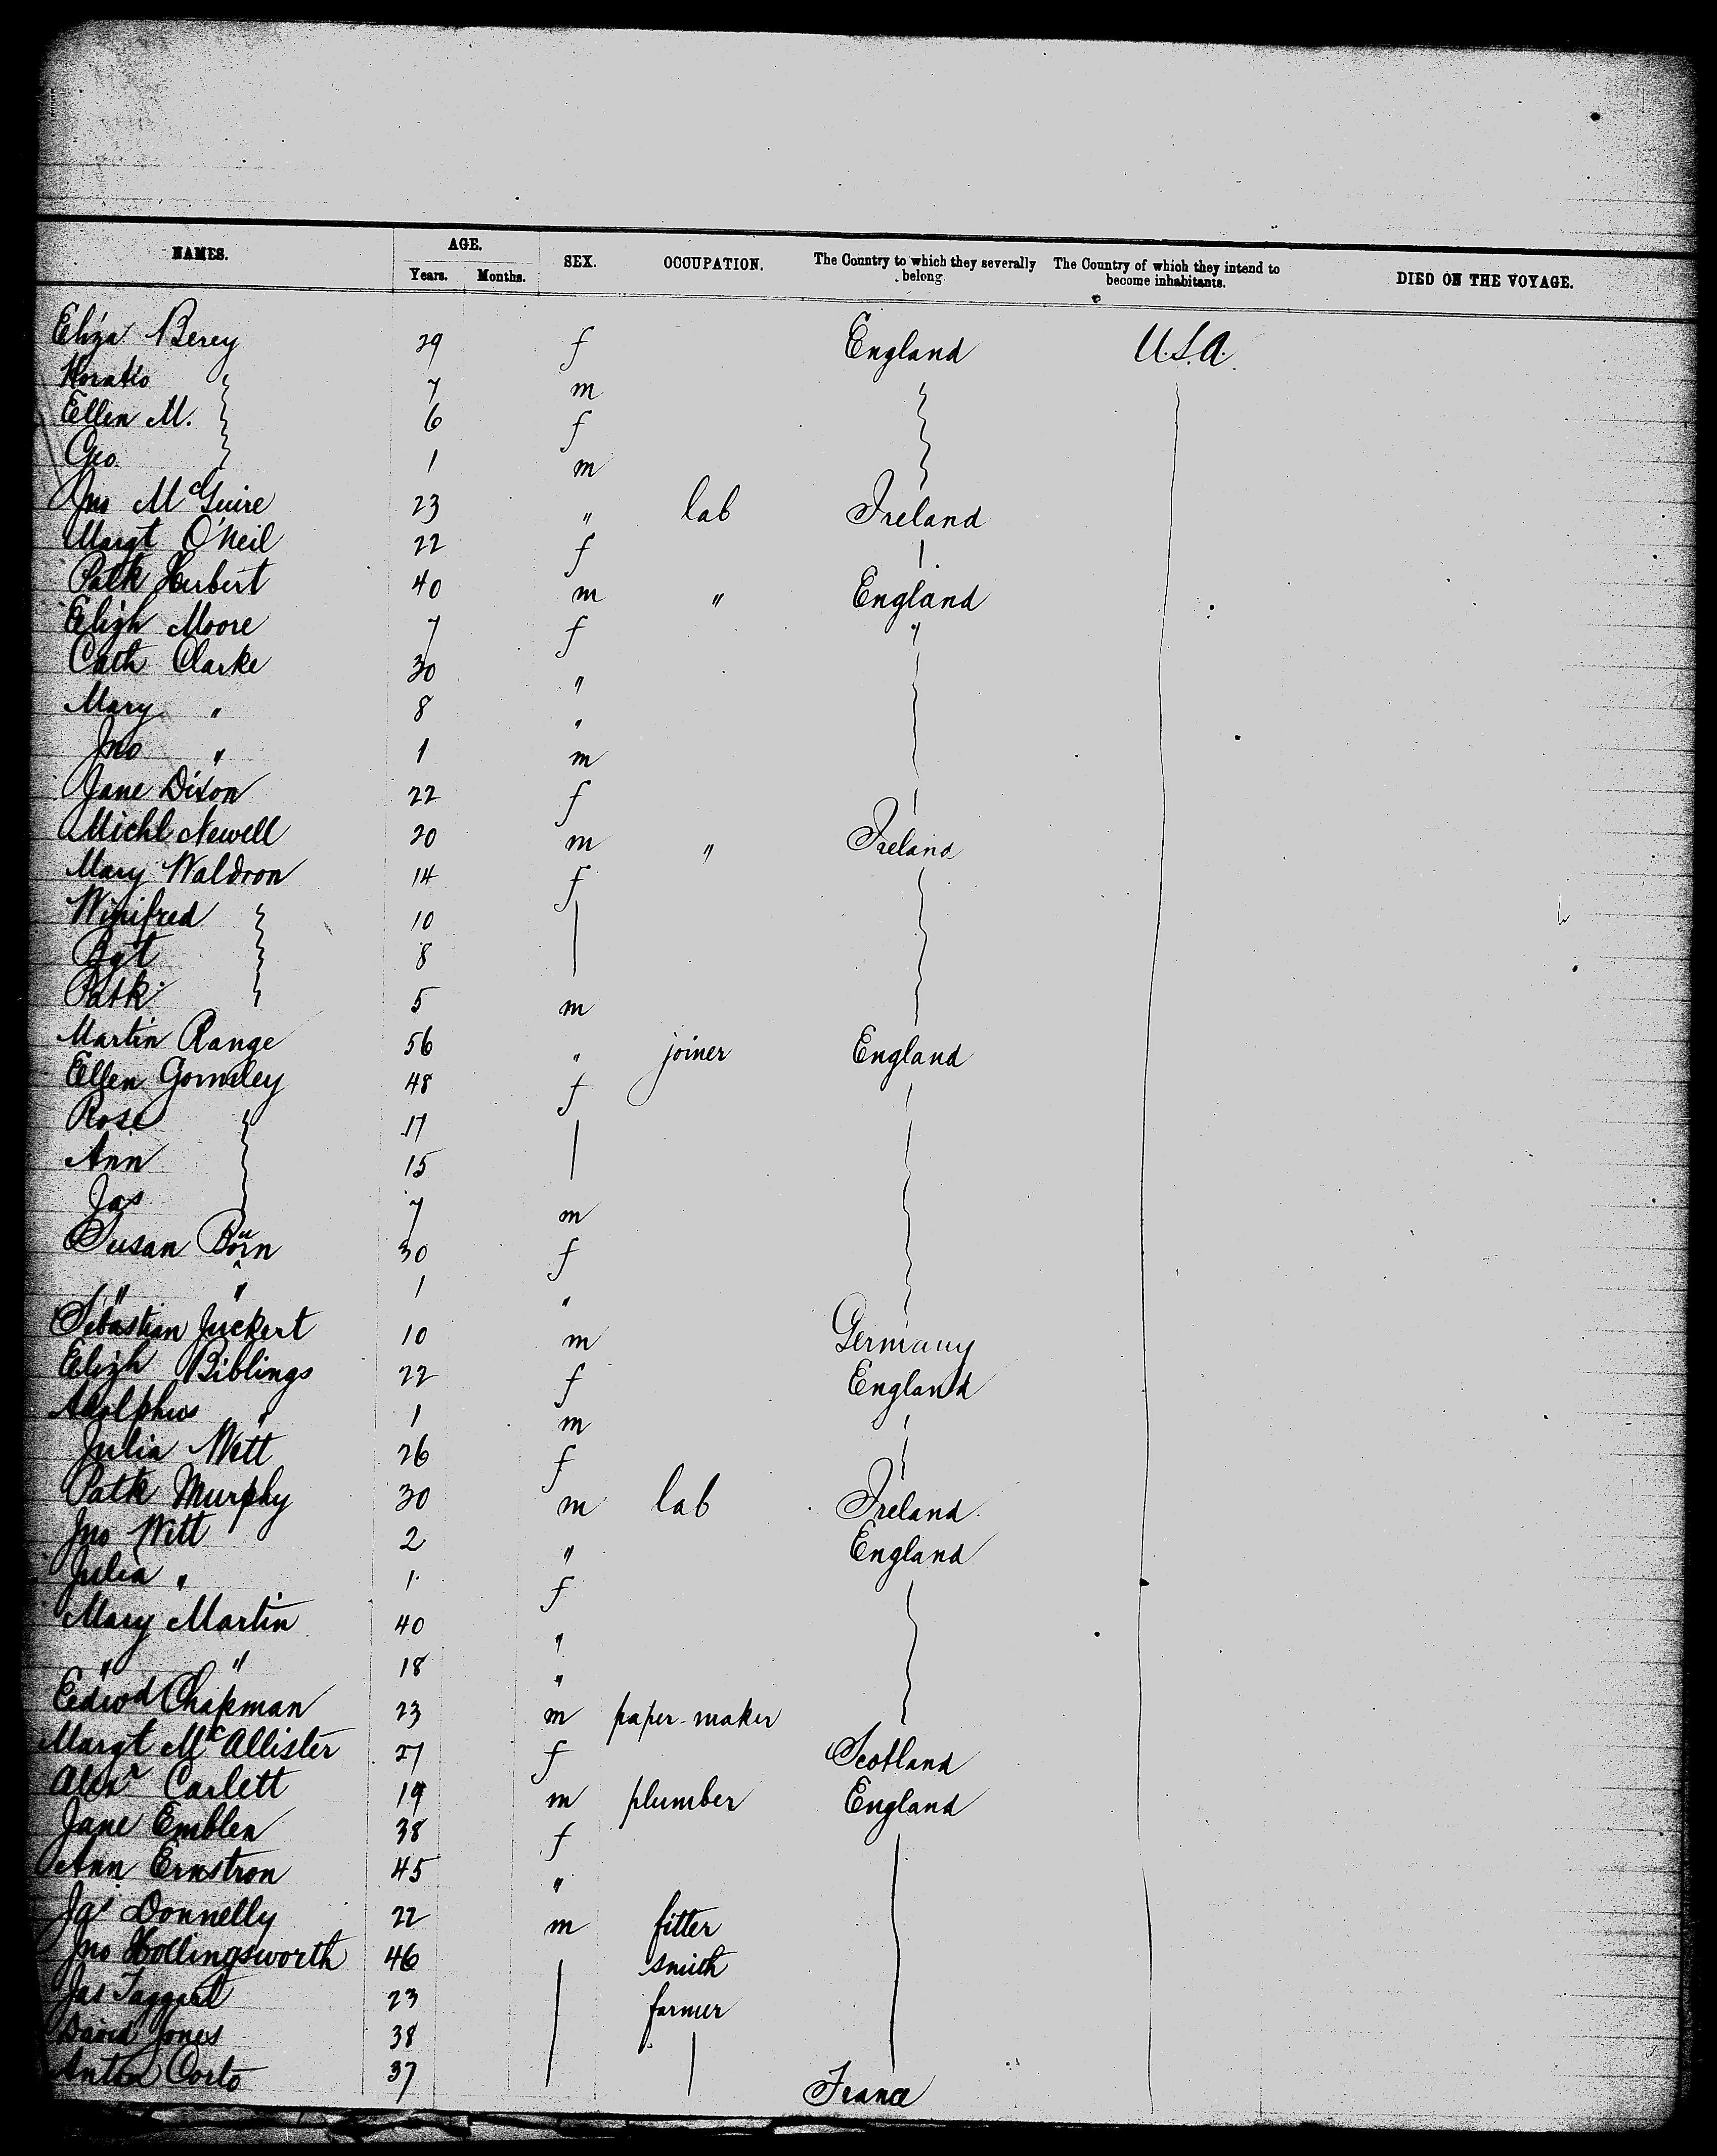 NAMES. AGE. SEX. OCCUPATION. The Country to which they severally belong. The Country of which they intend to become inhabitants. DIED ON THE VOYAGE.
Years. Months.
Eliza Berey 29 f England U.S.A.
Horatio 7 m
Ellen M. 6 f
Geo. 1 m
Jno McGuire 23 " lab Ireland
Margt O'Neil 22 f
Patk Herbert 40 m " England
Elizh Moore 7 f "
Cath Clarke 30 "
Mary " 8 "
Jno " 1 m
Jane Dixon 22 f
Michl Newell 20 m " Ireland
Mary Waldron 14 f
Winifred 10
Bgt 8
Patk 5 m
Martin Range 56 " joiner England
Ellen Gormley 48 f
Rose 17
Ann 15
Jas 7 m
Susan 30 f
" " 1 "
Sebastian Juckert 10 m Germany
Elizh Biblings 22 f England
Adolphus " 1 m
Julia Witt 26 f
Patk Murphy 30 m lab Ireland
Jno Witt 2 " England
Julia " 1 f
Mary Martin 40 "
" " 18 "
Edwd Chapman 23 m paper-maker
Margt McAllister 27 f Scotland
Alexr Carlett 19 m plumber England
Jane Emblen 38 f
Ann Ernstron 45 "
Jas Donnelly 22 m fitter
Jno Hollingsworth 46 smith
Jas Taggart 23 farmer
David Jones 38
Anton Corto 37 France